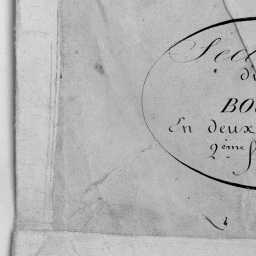 Sec
d
BO
En deux
2ème f